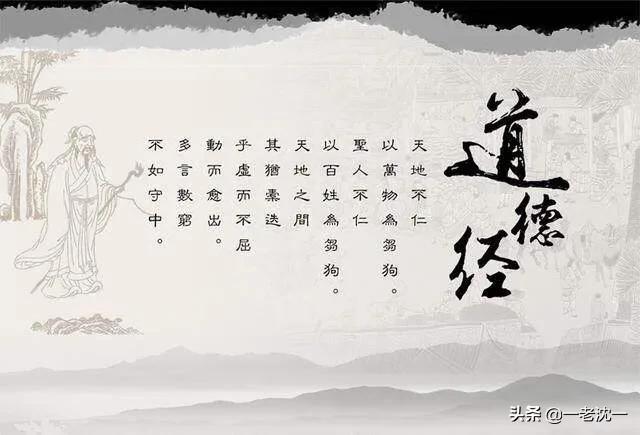 道德经
天地不仁
以萬物為芻狗。
聖人不仁
以百姓為芻狗。
天地之間
其猶橐迭
乎虛而不屈
動而愈出。
多言數窮
不如守中。
头条 @一老沈一